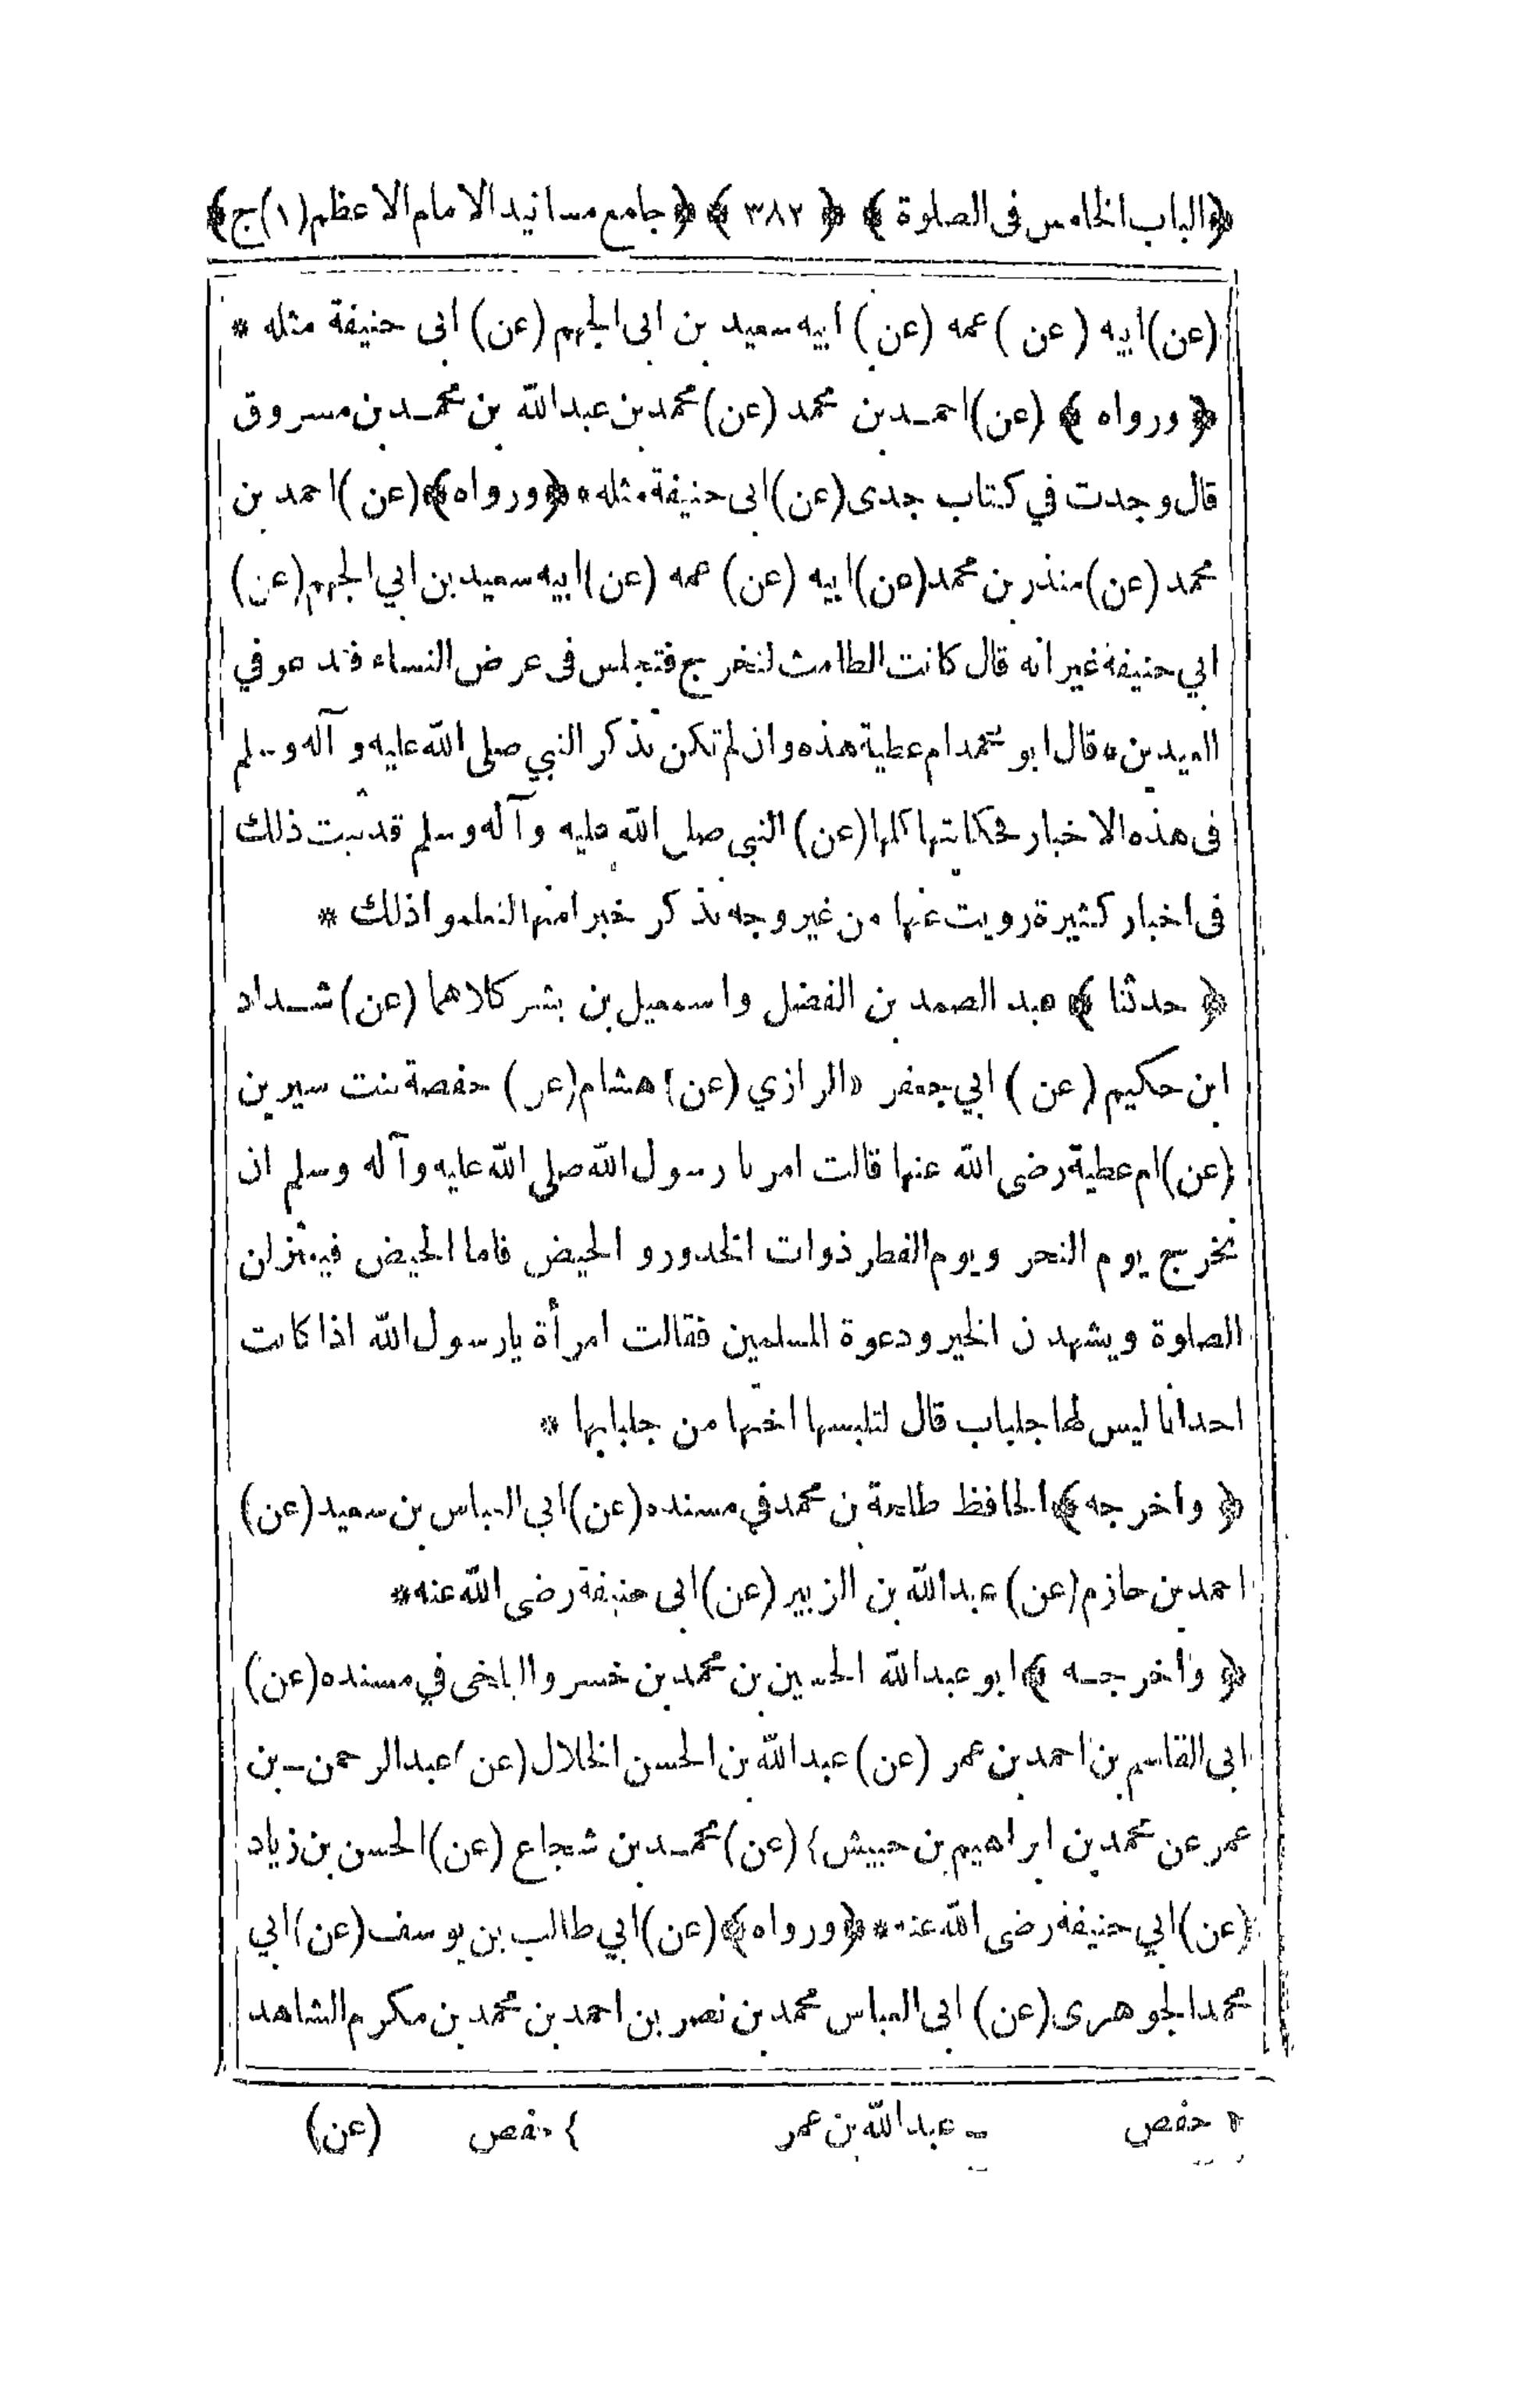 ﴿الباب الخامس فى الصلوة﴾ ﴿٣٨٢﴾ ﴿جامع مسانيد الامام الاعظم (١) ج﴾
(عن) ابيه (عن) عمه (عن) ابيه سعيد بن ابى الجهم (عن) ابى حنيفة مثله *
﴿ورواه﴾ (عن) احمد بن محمد (عن) محمد بن عبد الله بن محمد بن مسروق
قال وجدت في كتاب جدى (عن) ابى حنيفة مثله * ﴿ورواه﴾ (عن) احمد بن
محمد (عن) منذر بن محمد (عن) ابيه (عن) عمه (عن) ابيه سعيد بن ابي الجهم (عن)
ابي حنيفة غير انه قال كانت الطامث لتخرج فتجلس فى عرض النساء فتدعو في
العيدين * قال ابو محمد ام عطية هذه وان لم تكن تذكر النبي صلى الله عليه وآله وسلم
فى هذه الاخبار فحكايتها كلها (عن) النبي صلى الله عليه وآله وسلم قد ثبت ذلك
فى اخبار كثيرة رويت عنها من غير وجه نذكر خبرا منها لتعلموا ذلك *
﴿حدثنا﴾ عبد الصمد بن الفضل واسمعيل بن بشر كلاهما (عن) شداد
ابن حكيم (عن) ابي جعفر الرازي (عن) هشام (عن) حفصة بنت سيرين
(عن) ام عطية رضى الله عنها قالت امرنا رسول الله صلى الله عليه وآله وسلم ان
نخرج يوم النحر ويوم الفطر ذوات الخدور والحيض فاما الحيض فيعتزلن
الصلوة ويشهدن الخير ودعوة المسلمين فقالت امرأة يا رسول الله اذا كانت
احدانا ليس لها جلباب قال لتلبسها اختها من جلبابها *
﴿واخرجه﴾ الحافظ طلحة بن محمد في مسنده (عن) ابي العباس بن سعيد (عن)
احمد بن حازم (عن) عبد الله بن الزبير (عن) ابى حنيفة رضى الله عنه *
﴿واخرجه﴾ ابو عبد الله الحسين بن محمد بن خسرو البلخى في مسنده (عن)
ابى القاسم بن احمد بن عمر (عن) عبد الله بن الحسن الخلال (عن) عبد الرحمن بن
عمر عن محمد بن ابراهيم بن حبيش } (عن) محمد بن شجاع (عن) الحسن بن زياد
(عن) ابي حنيفة رضى الله عنه * ﴿ورواه﴾ (عن) ابي طالب بن يوسف (عن) ابي
محمد الجوهرى (عن) ابى العباس محمد بن نصر بن احمد بن محمد بن مكرم الشاهد
حفص عبد الله بن عمر } حفص (عن)